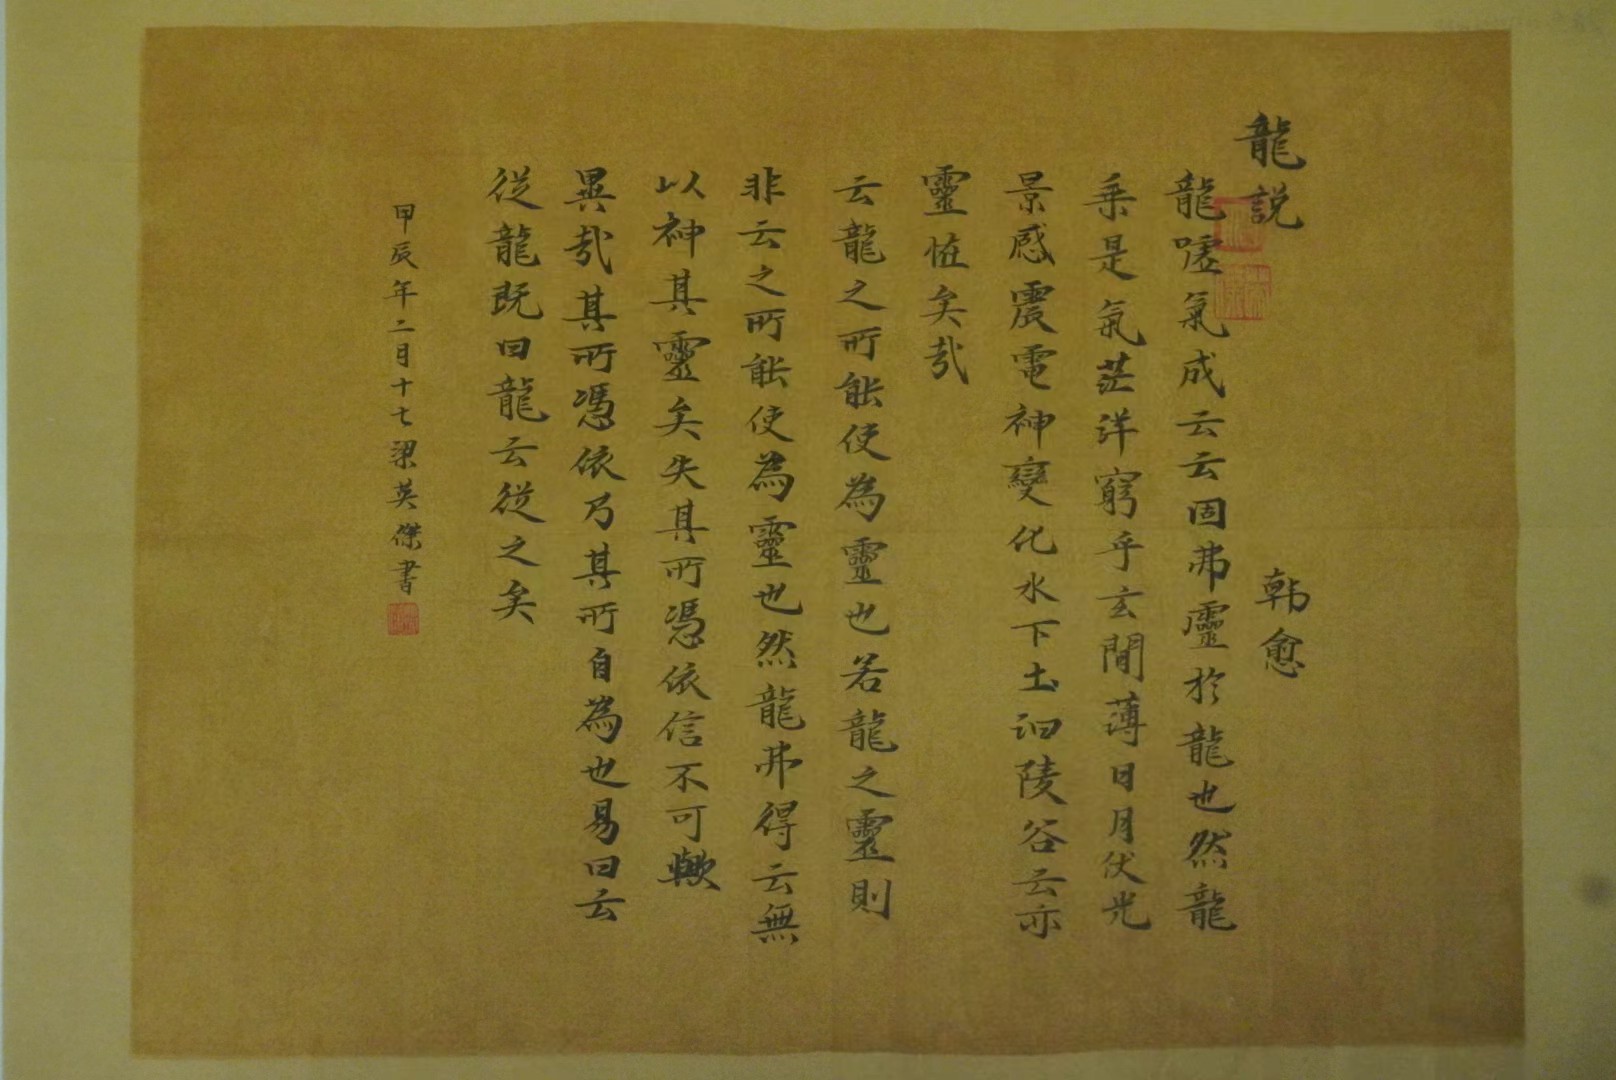 龍説
韓愈
龍噓氣成云云固弗靈於龍也然龍
乘是氣茫洋窮乎玄間薄日月伏光
景感震電神變化水下土汩陵谷云亦
靈恠矣哉
云龍之所能使為靈也若龍之靈則
非云之所能使為靈也然龍弗得云無
以神其靈矣失其所憑依信不可歟
異哉其所憑依乃其所自為也易曰云
從龍既曰龍云從之矣
甲辰年二月十七梁英傑書